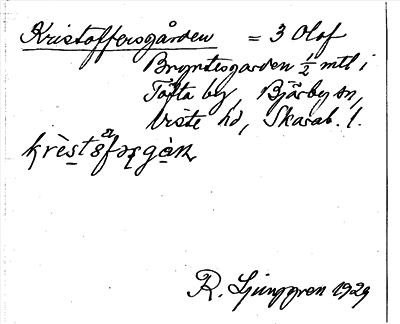 Kristoffersgården = 3 Olof
Bryntesgarden 1/2 mtl i
Tofta by, Bjärby sn,
Viste hd, Skarab. l.
R. Ljunggren 1929